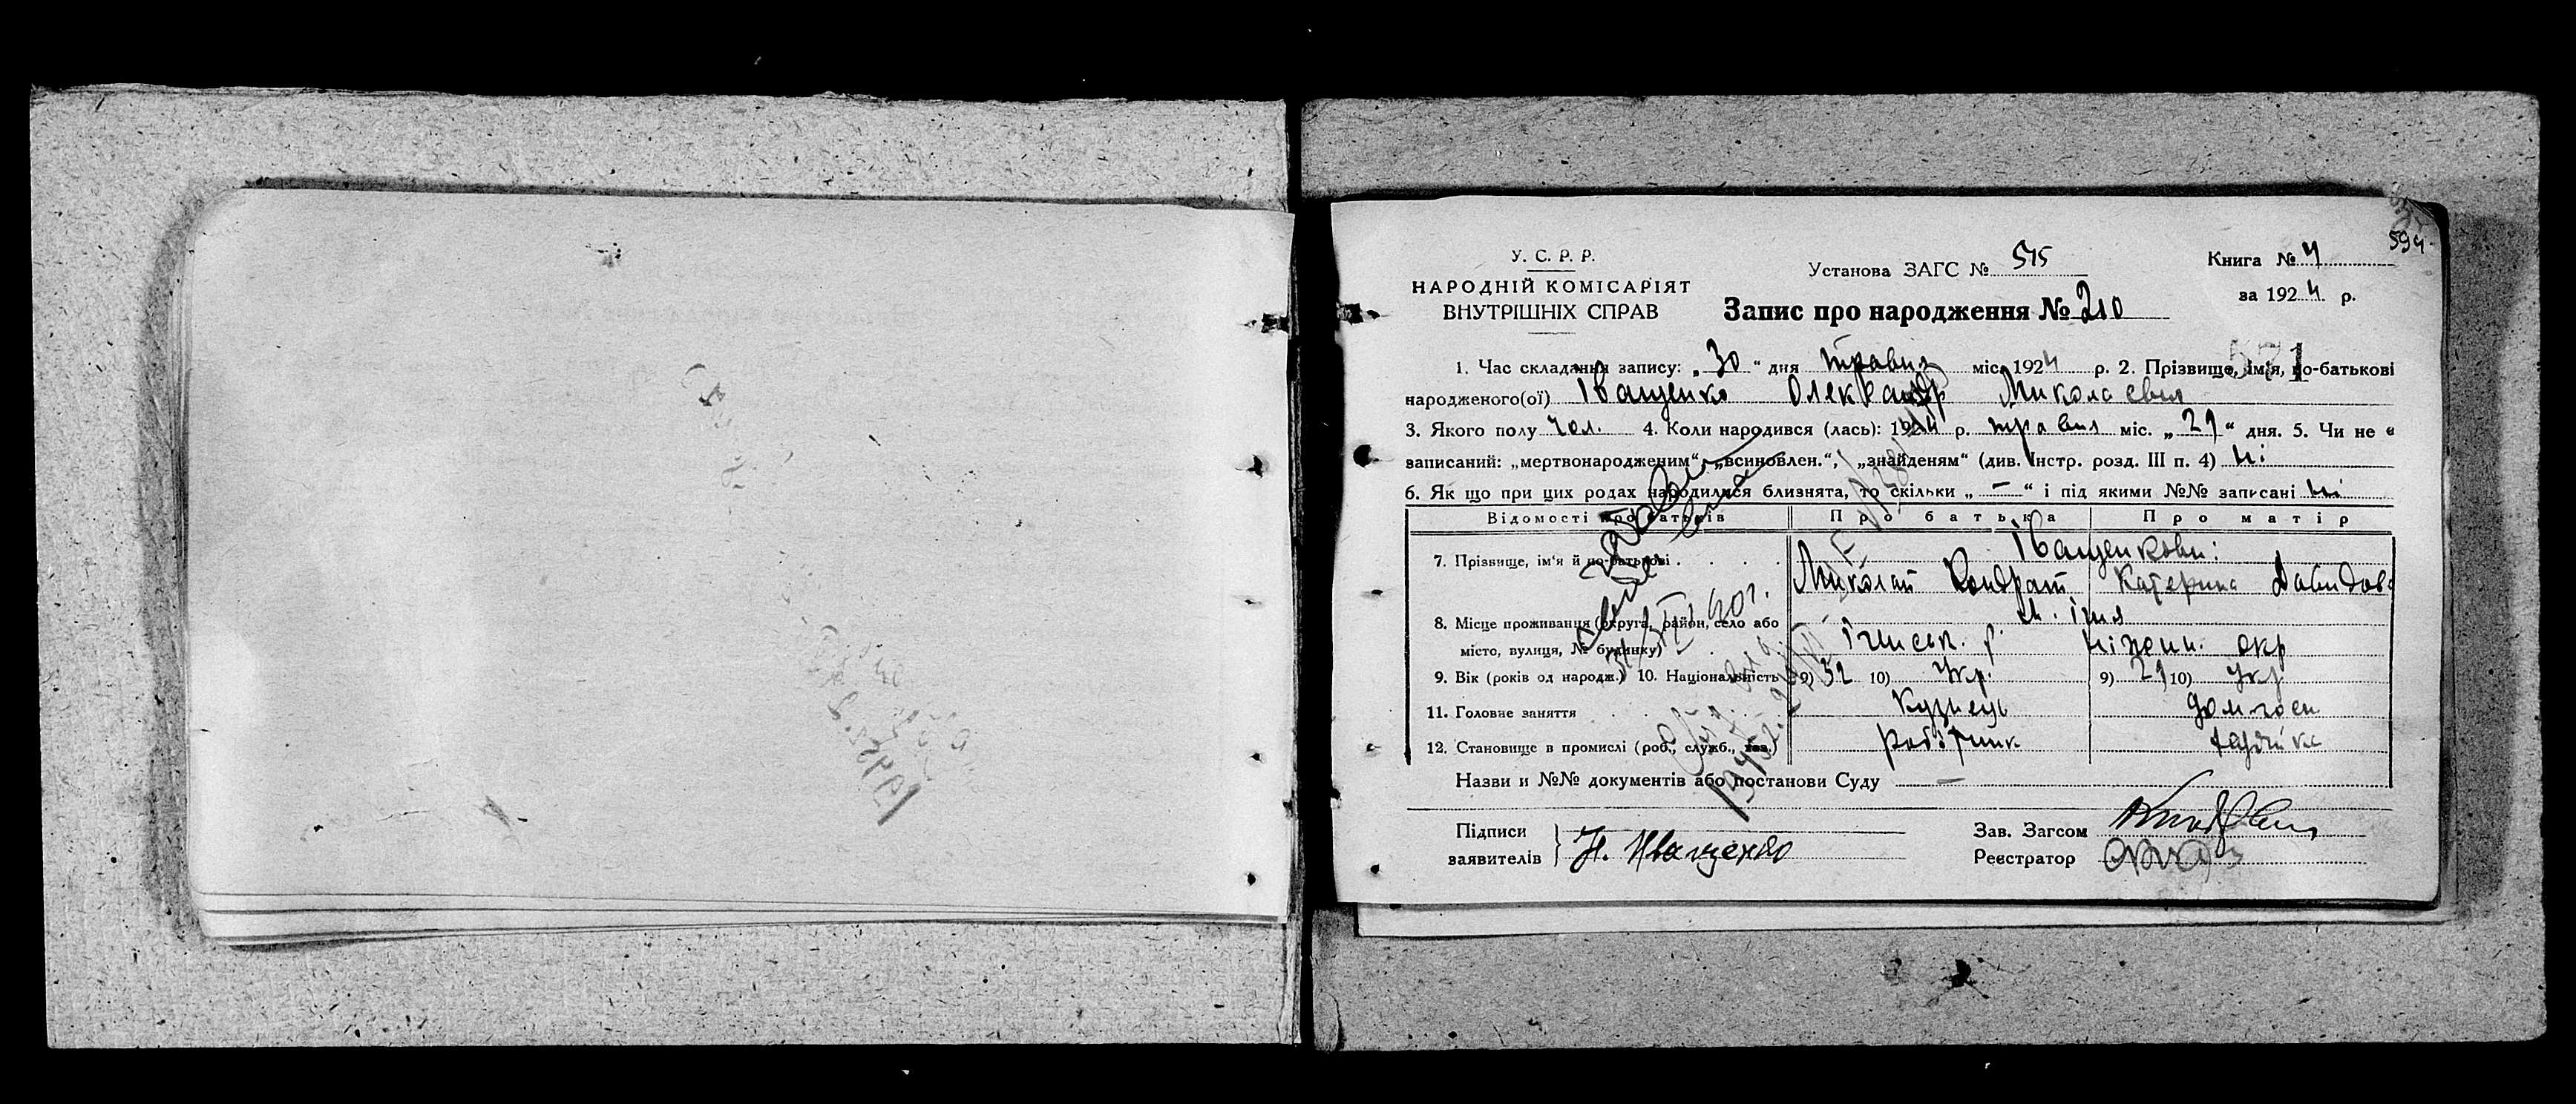 594
У. С. Р. Р.
НАРОДНІЙ КОМІСАРІЯТ
ВНУТРІШНІХ СПРАВ
Установа ЗАГС № 515
Книга № 4
за 1924 р.
Запис про народження № 210
571
1. Час складання запису: „30“ дня травня міс. 1924 р. 2. Прізвище, ім'я, по-батькові
народженого(ої) Іващенко Олександр Миколаєвич
3. Якого полу чол. 4. Коли народився (лась): 1924 р. травня міс. „29“ дня. 5. Чи не є
записаний: „мертвонародженим“, „всиновлен.“, „знайденям“ (див. Інстр. розд. III п. 4) ні
6. Як що при цих родах народилися близнята, то скільки „—“ і під якими №№ записані ні
Відомості про батьків Про батька Про матір
7. Прізвище, ім'я й по-батькові Іващенкови:
Миколай Кондрат Катерина Давидов
8. Місце проживання (округа, район, село або м. Ічня
місто, вулиця, № будинку) Ічнськ. р. Ніжен. окр
9. Вік (років од народж.) 10. Національність 9) 32 10) Укр. 9) 29 10) Укр
11. Головне заняття Кузнець дом госп
12. Становище в промислі (роб., служб., хаз.) робітник
Назви и №№ документів або постанови Суду —
Підписи
заявителів Н. Иващенко
Зав. Загсом
Реєстратор